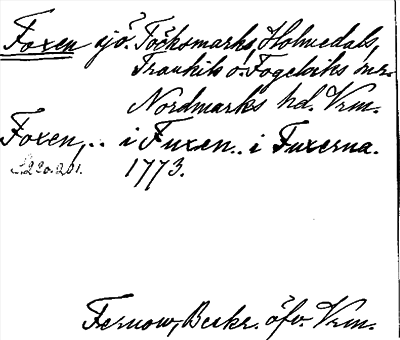 Foxen sjö. Töcksmarks, Holmedals,
Trankils o. Fogelviks snr.
Nordmarks hd. Vrm.
Foxen, .. i Fuxen .. i Fuxerna.
S. 20. 201. 1773.
Fernow, Beskr. öfv. Vrm.